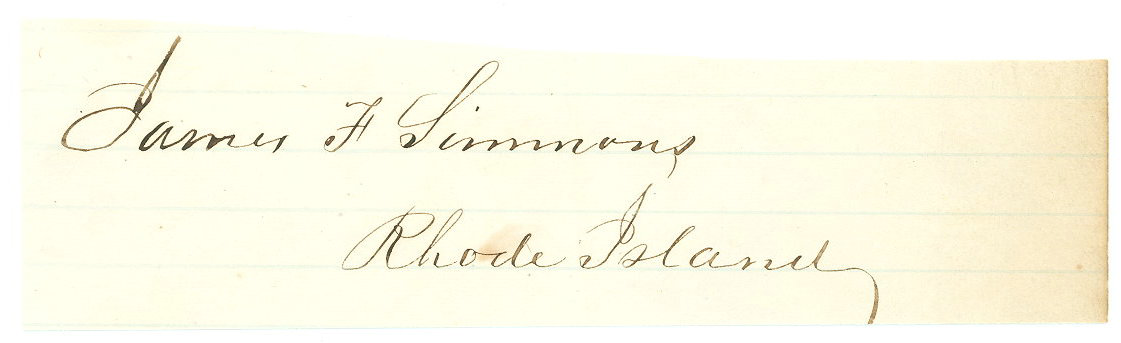 James F Simmons
Rhode Island